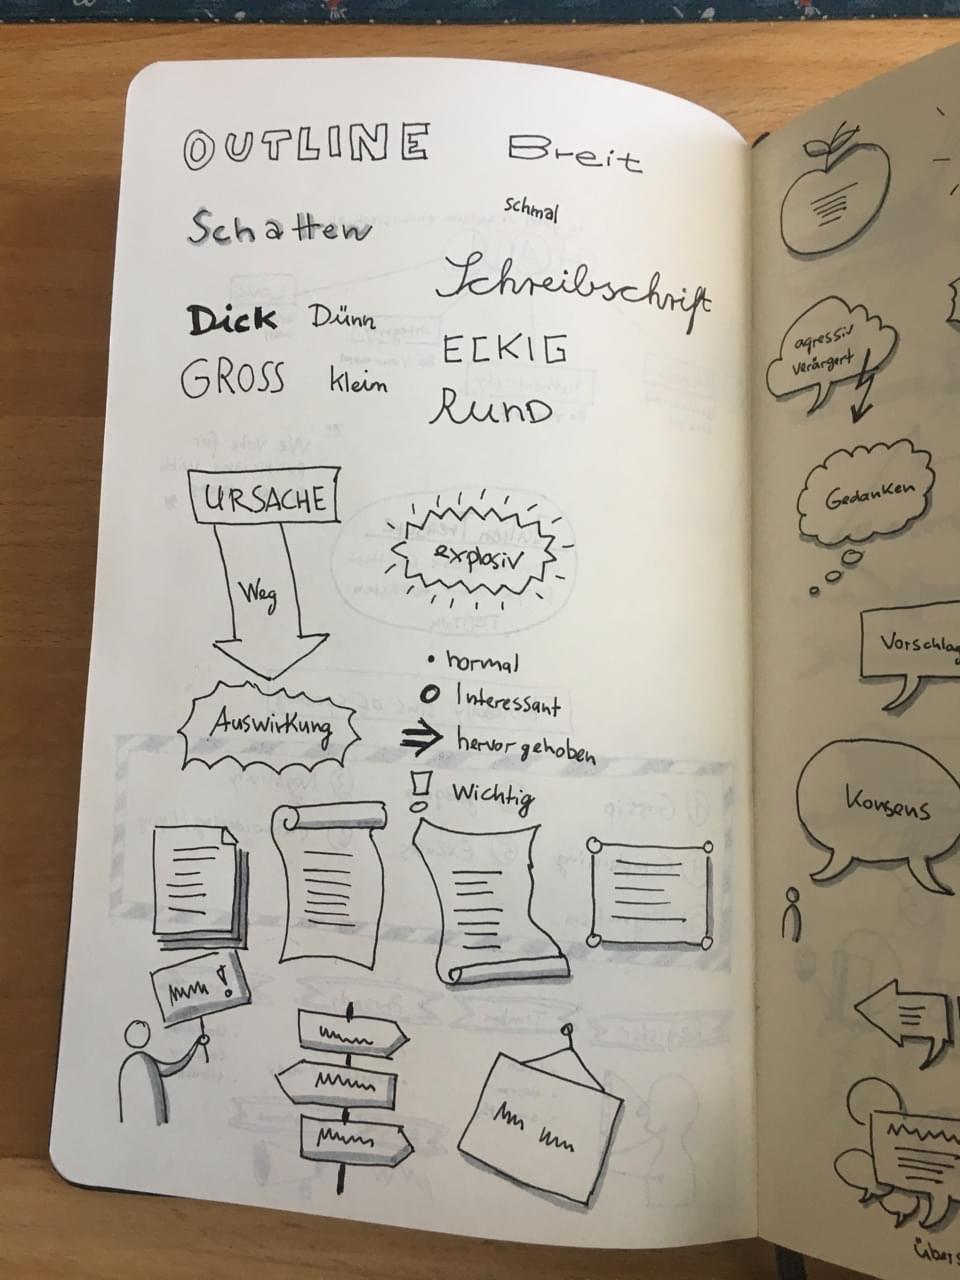 OUTLINE
Breit
Schatten
schmal
Schreibschrift
Dick Dünn
ECKIG
GROSS klein
RUND
URSACHE
Weg
explosiv
Auswirkung
• normal
Interessant
hervorgehoben
! Wichtig
!
agressiv
verärgert
Gedanken
Vorschlag
Konsens